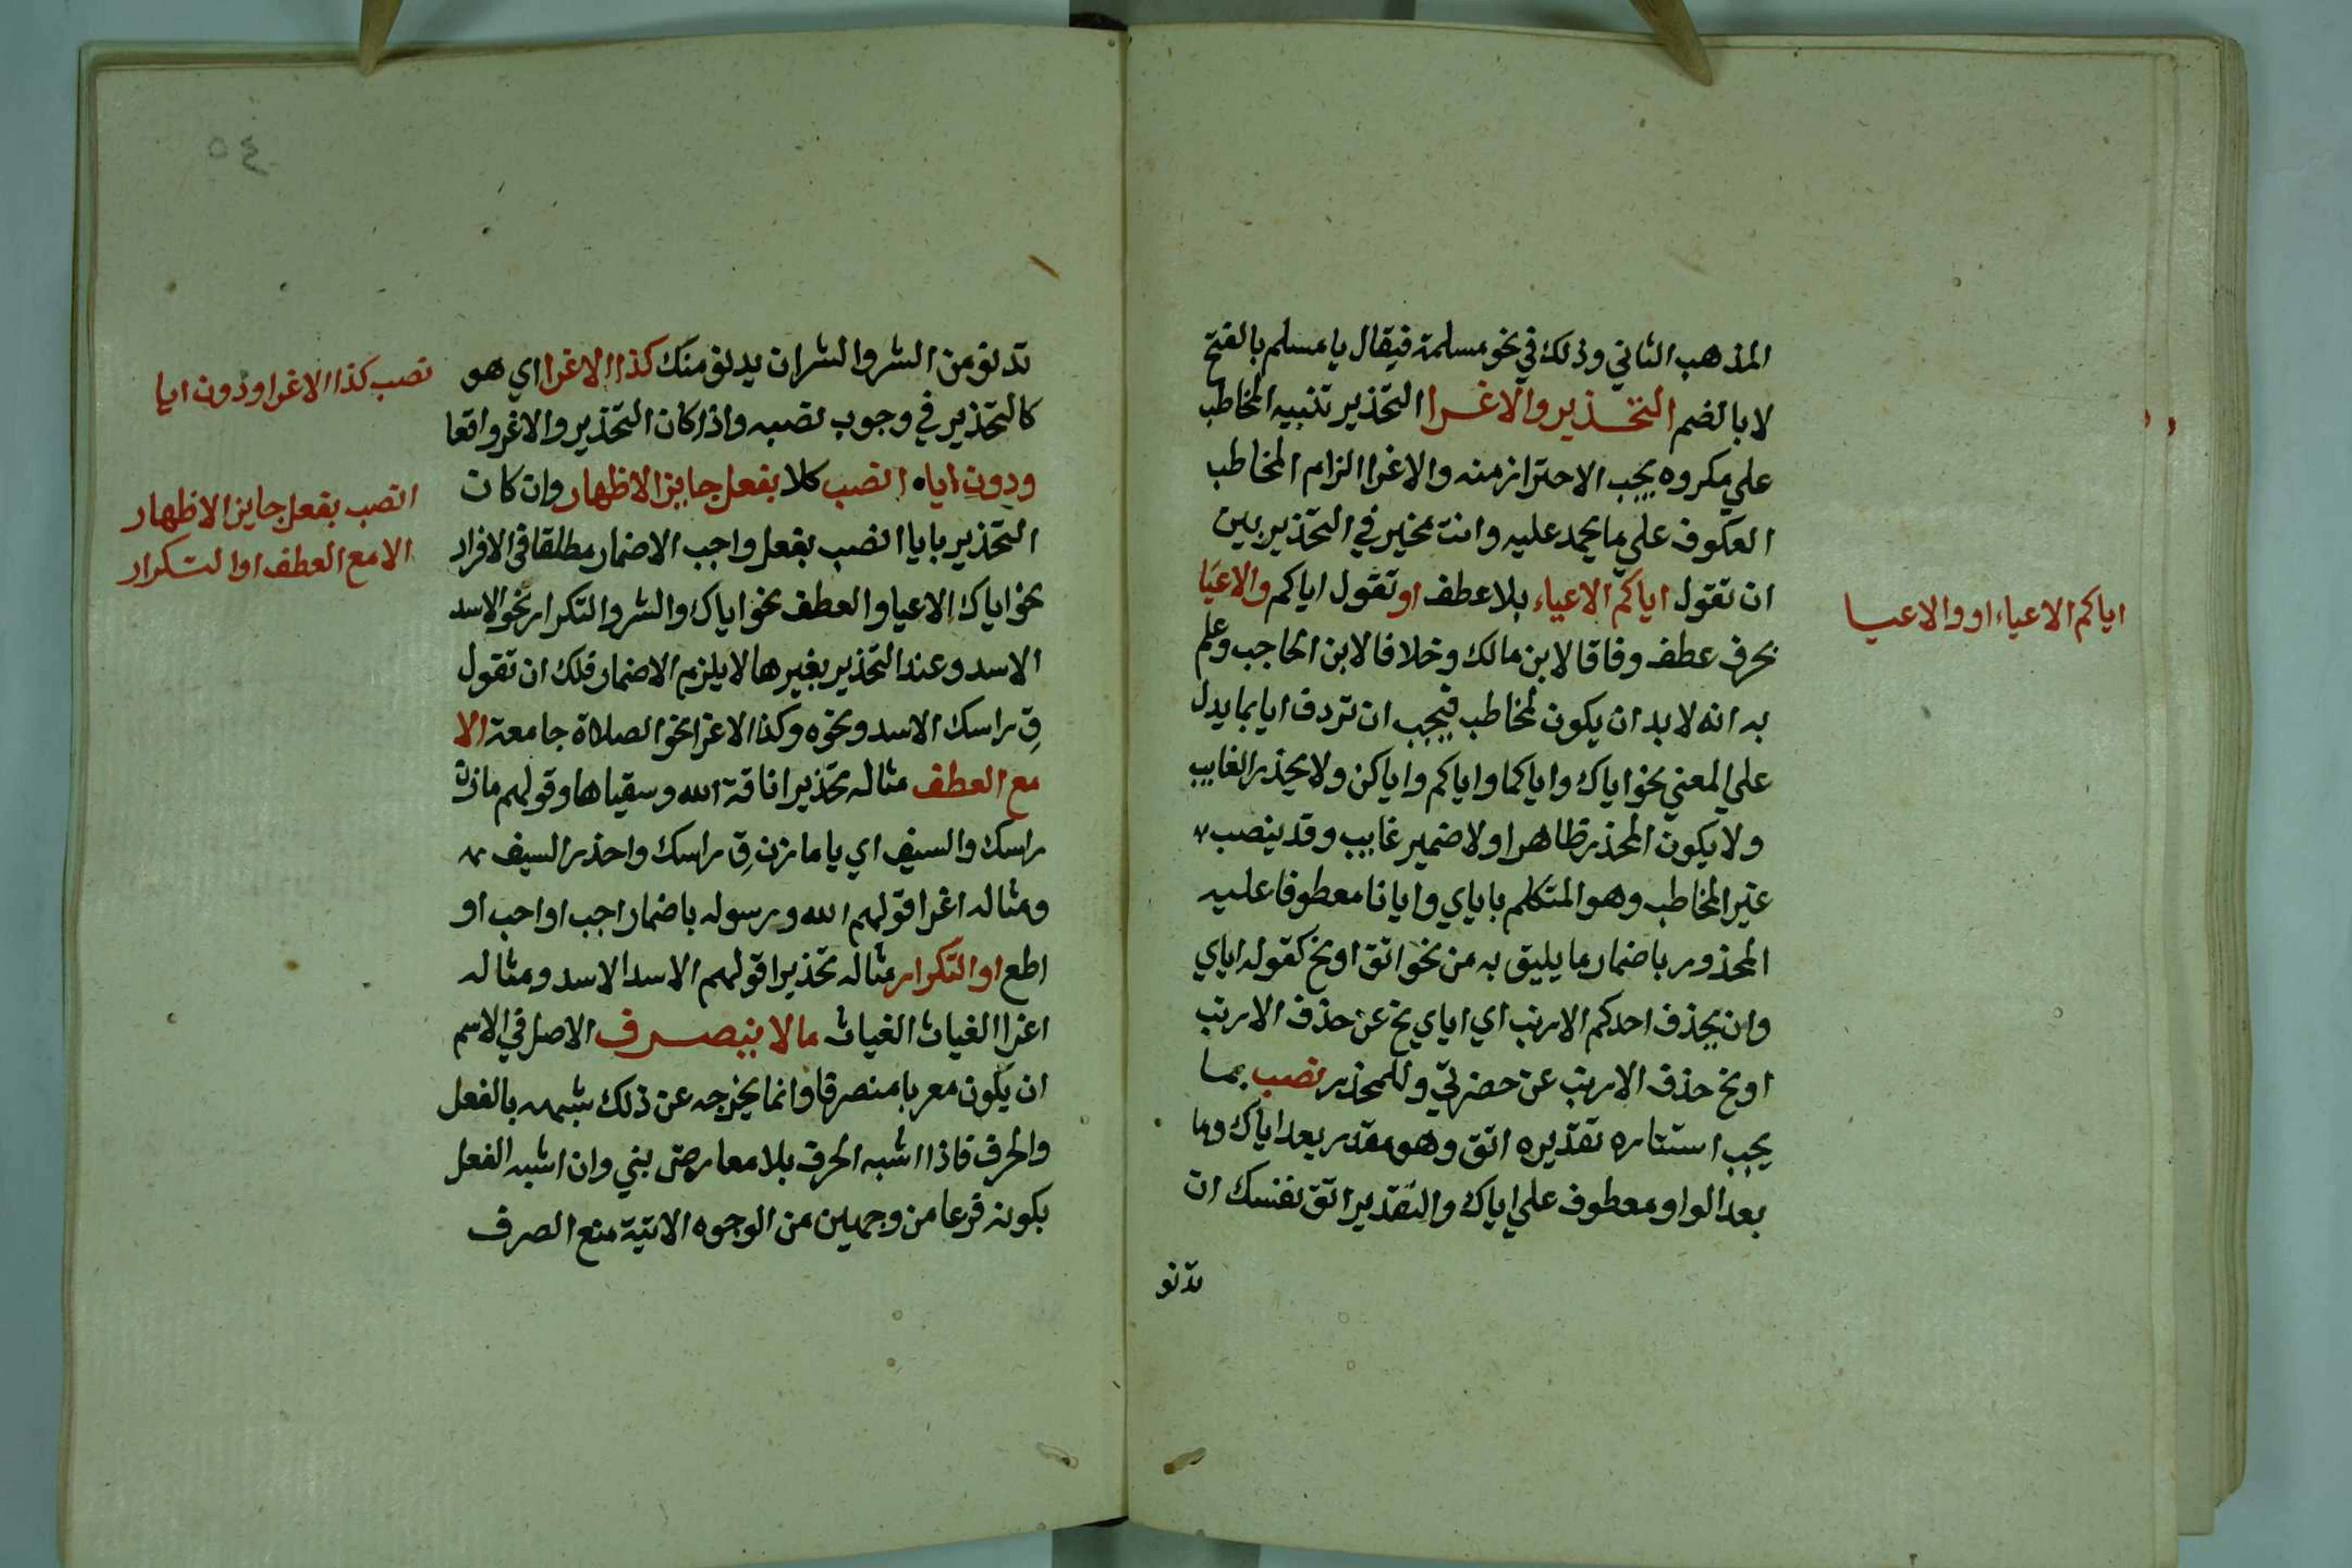 المذهب الثاني وذلك في نحو مسلمة فيقال يا مسلم بالفتح
لا بالضم التحذير والاغرا التحذير تنبيه المخاطب
علي مكروه يجب الاحتراز منه والاغرا الزام المخاطب
العكوف علي ما يحمد عليه وانت مخير في التحذير بين
ان تقول اياكم الاعياء بلا عطف او تقول اياكم والاعيا
بحرف عطف وفاقا لابن مالك وخلافا لابن الحاجب وعلم
به انه لا بد ان يكون لمخاطب فيجب ان تردف ايا بما يدل
علي المعني نحو اياك واياكما واياكم واياكن ولا يحذر الغايب
ولا يكون المحذر ظاهرا ولا ضمير غايب وقد ينصب
غير المخاطب وهو المتكلم باياي وايانا معطوفا عليه
المحذور باضمار ما يليق به من نحو اتق او نح كقوله اياي
وان يحذف احدكم الارنب اي اياي نح عن حذف الارنب
او نح حذف الارنب عن حضرتي وللمحذر نصب بما
يجب استتاره تقديره اتق وهو مقدر بعد اياك وما
بعد الواو معطوف علي اياك والتقدير اتق نفسك ان
تدنو
اياكم الاعياء او والاعيا
٥٤
تدنو من الشر والشر ان يدنو منك كذا الاغرا اي هو
كالتحذير في وجوب نصبه واذا كان التحذير والاغر واقعا
ودون اياه انصب كلا بفعل جايز الاظهار وان كان
التحذير بايا انصب بفعل واجب الاضمار مطلقا في الافراد
نحو اياك الاعيا والعطف نحو اياك والشر والتكرار نحو الاسد
الاسد وعند التحذير بغيرها لا يلزم الاضمار فلك ان تقول
قِ راسك الاسد ونحوه وكذا الاغرا نحو الصلاة جامعة الا
مع العطف مثاله تحذيرا ناقة الله وسقياها وقولهم مازن
راسك والسيف اي يا مازن قِ راسك واحذر السيف
ومثاله اغرا قولهم الله ورسوله باضمار اجب او احب او
اطع او التكرار مثاله تحذيرا قولهم الاسد الاسد ومثاله
اغرا الغياث الغياث ما لا ينصرف الاصل في الاسم
ان يكون معربا منصرفا وانما يخرجه عن ذلك شبهه بالفعل
والحرف فاذا اشبه الحرف بلا معارض بني وان اشبه الفعل
بكونه فرعا من وجهين من الوجوه الاتية منع الصرف
نصب كذا الاغرا ودون ايا
انصب بفعل جايز الاظهار
الا مع العطف او التكرار